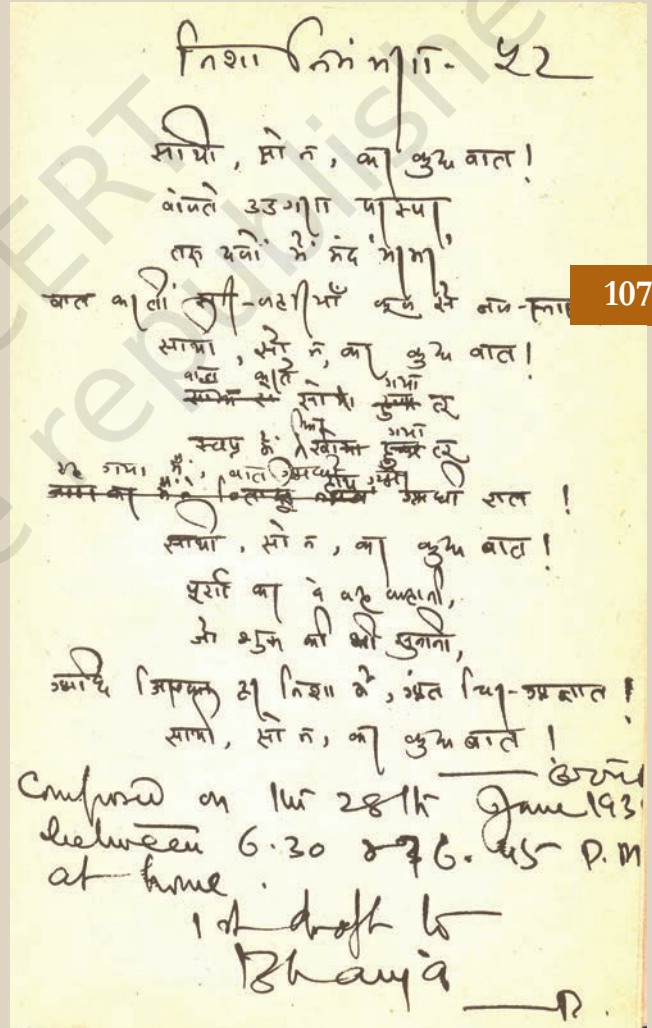 निशा निमंत्रण - ५२
साथी, सो न, कर कुछ बात!
बोलते उडुगण परस्पर,
तरु दलों में मंद मरमर,
बात करतीं सरि-लहरियाँ कूल से जल-स्ना
107
साथी, सो न, कर कुछ बात!
बात करते सो गया तू
स्वप्न में फिर खो गया तू
रह गया मैं, बात आधी आधी रात!
साथी, सो न, कर कुछ बात!
पूर्ण कर दे वह कहानी,
जो शुरू की थी सुनानी,
आदि जिसका हर निशा में, अंत चिर-अज्ञात!
साथी, सो न, कर कुछ बात!
Composed on the 28th June 193
between 6.30 & 6.45 P.M
at home.
1st draft to
Bhanja
NCERT
republishe